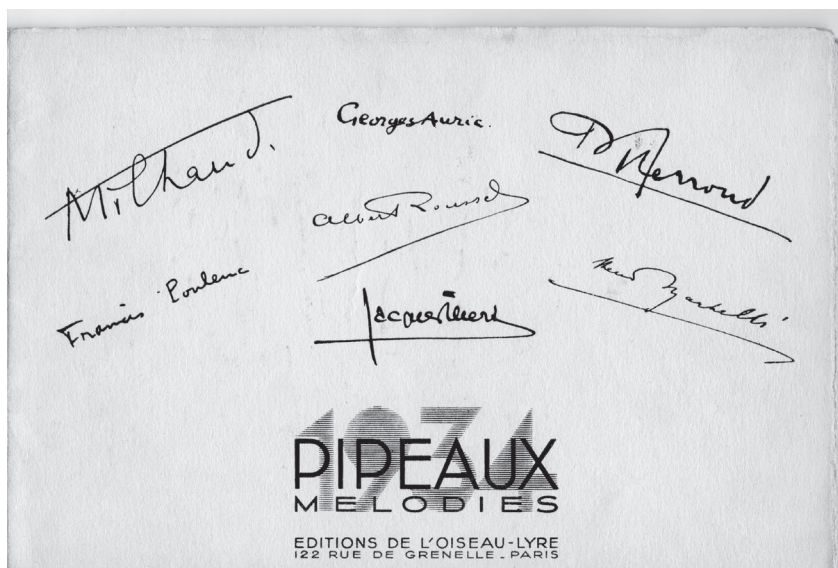 Milhaud.
Georges Auric.
P. O. Ferroud
Albert Roussel
Francis Poulenc
Jacques Ibert
Henri Martelli
1934
PIPEAUX
MELODIES
EDITIONS DE L'OISEAU-LYRE
122 RUE DE GRENELLE - PARIS